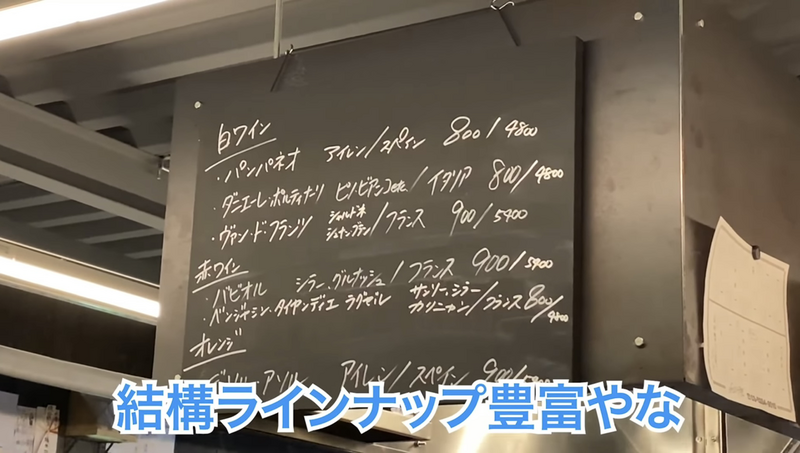 白ワイン
・パンパネオ アイレン/スペイン 800/4800
・ダニエーレ・ポルティナーリ ピノビアンコetc/イタリア 800/4800
・ヴァン・ド・フランツ シャルドネ シュナンブラン/フランス 900/5400
赤ワイン
・バビオル シラー、グルナッシュ/フランス 900/5400
・ベンジャミン・タイヤンディエ ラグゼル サンソー、シラー カリニャン/フランス 800/4800
オレンジ
アイレン/スペイン 900/
結構ラインナップ豊富やな